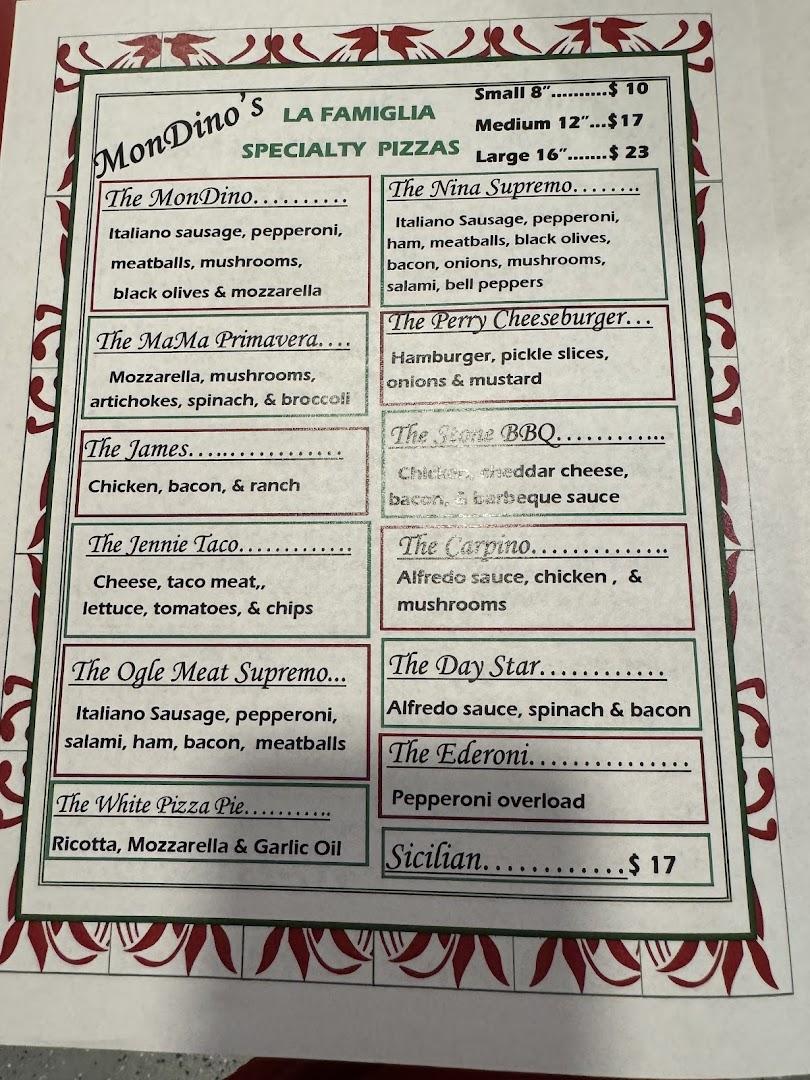 MonDino's
LA FAMIGLIA
SPECIALTY PIZZAS
Small 8"..........$ 10
Medium 12"...$17
Large 16".......$ 23
The MonDino..........
Italiano sausage, pepperoni,
meatballs, mushrooms,
black olives & mozzarella
The MaMa Primavera....
Mozzarella, mushrooms,
artichokes, spinach, & broccoli
The James.................
Chicken, bacon, & ranch
The Jennie Taco.............
Cheese, taco meat,,
lettuce, tomatoes, & chips
The Ogle Meat Supremo...
Italiano Sausage, pepperoni,
salami, ham, bacon, meatballs
The White Pizza Pie...........
Ricotta, Mozzarella & Garlic Oil
The Nina Supremo........
Italiano Sausage, pepperoni,
ham, meatballs, black olives,
bacon, onions, mushrooms,
salami, bell peppers
The Perry Cheeseburger...
Hamburger, pickle slices,
onions & mustard
The Stone BBQ..............
Chicken, cheddar cheese,
bacon, & barbeque sauce
The Carpino...............
Alfredo sauce, chicken , &
mushrooms
The Day Star............
Alfredo sauce, spinach & bacon
The Ederoni...............
Pepperoni overload
Sicilian............$ 17